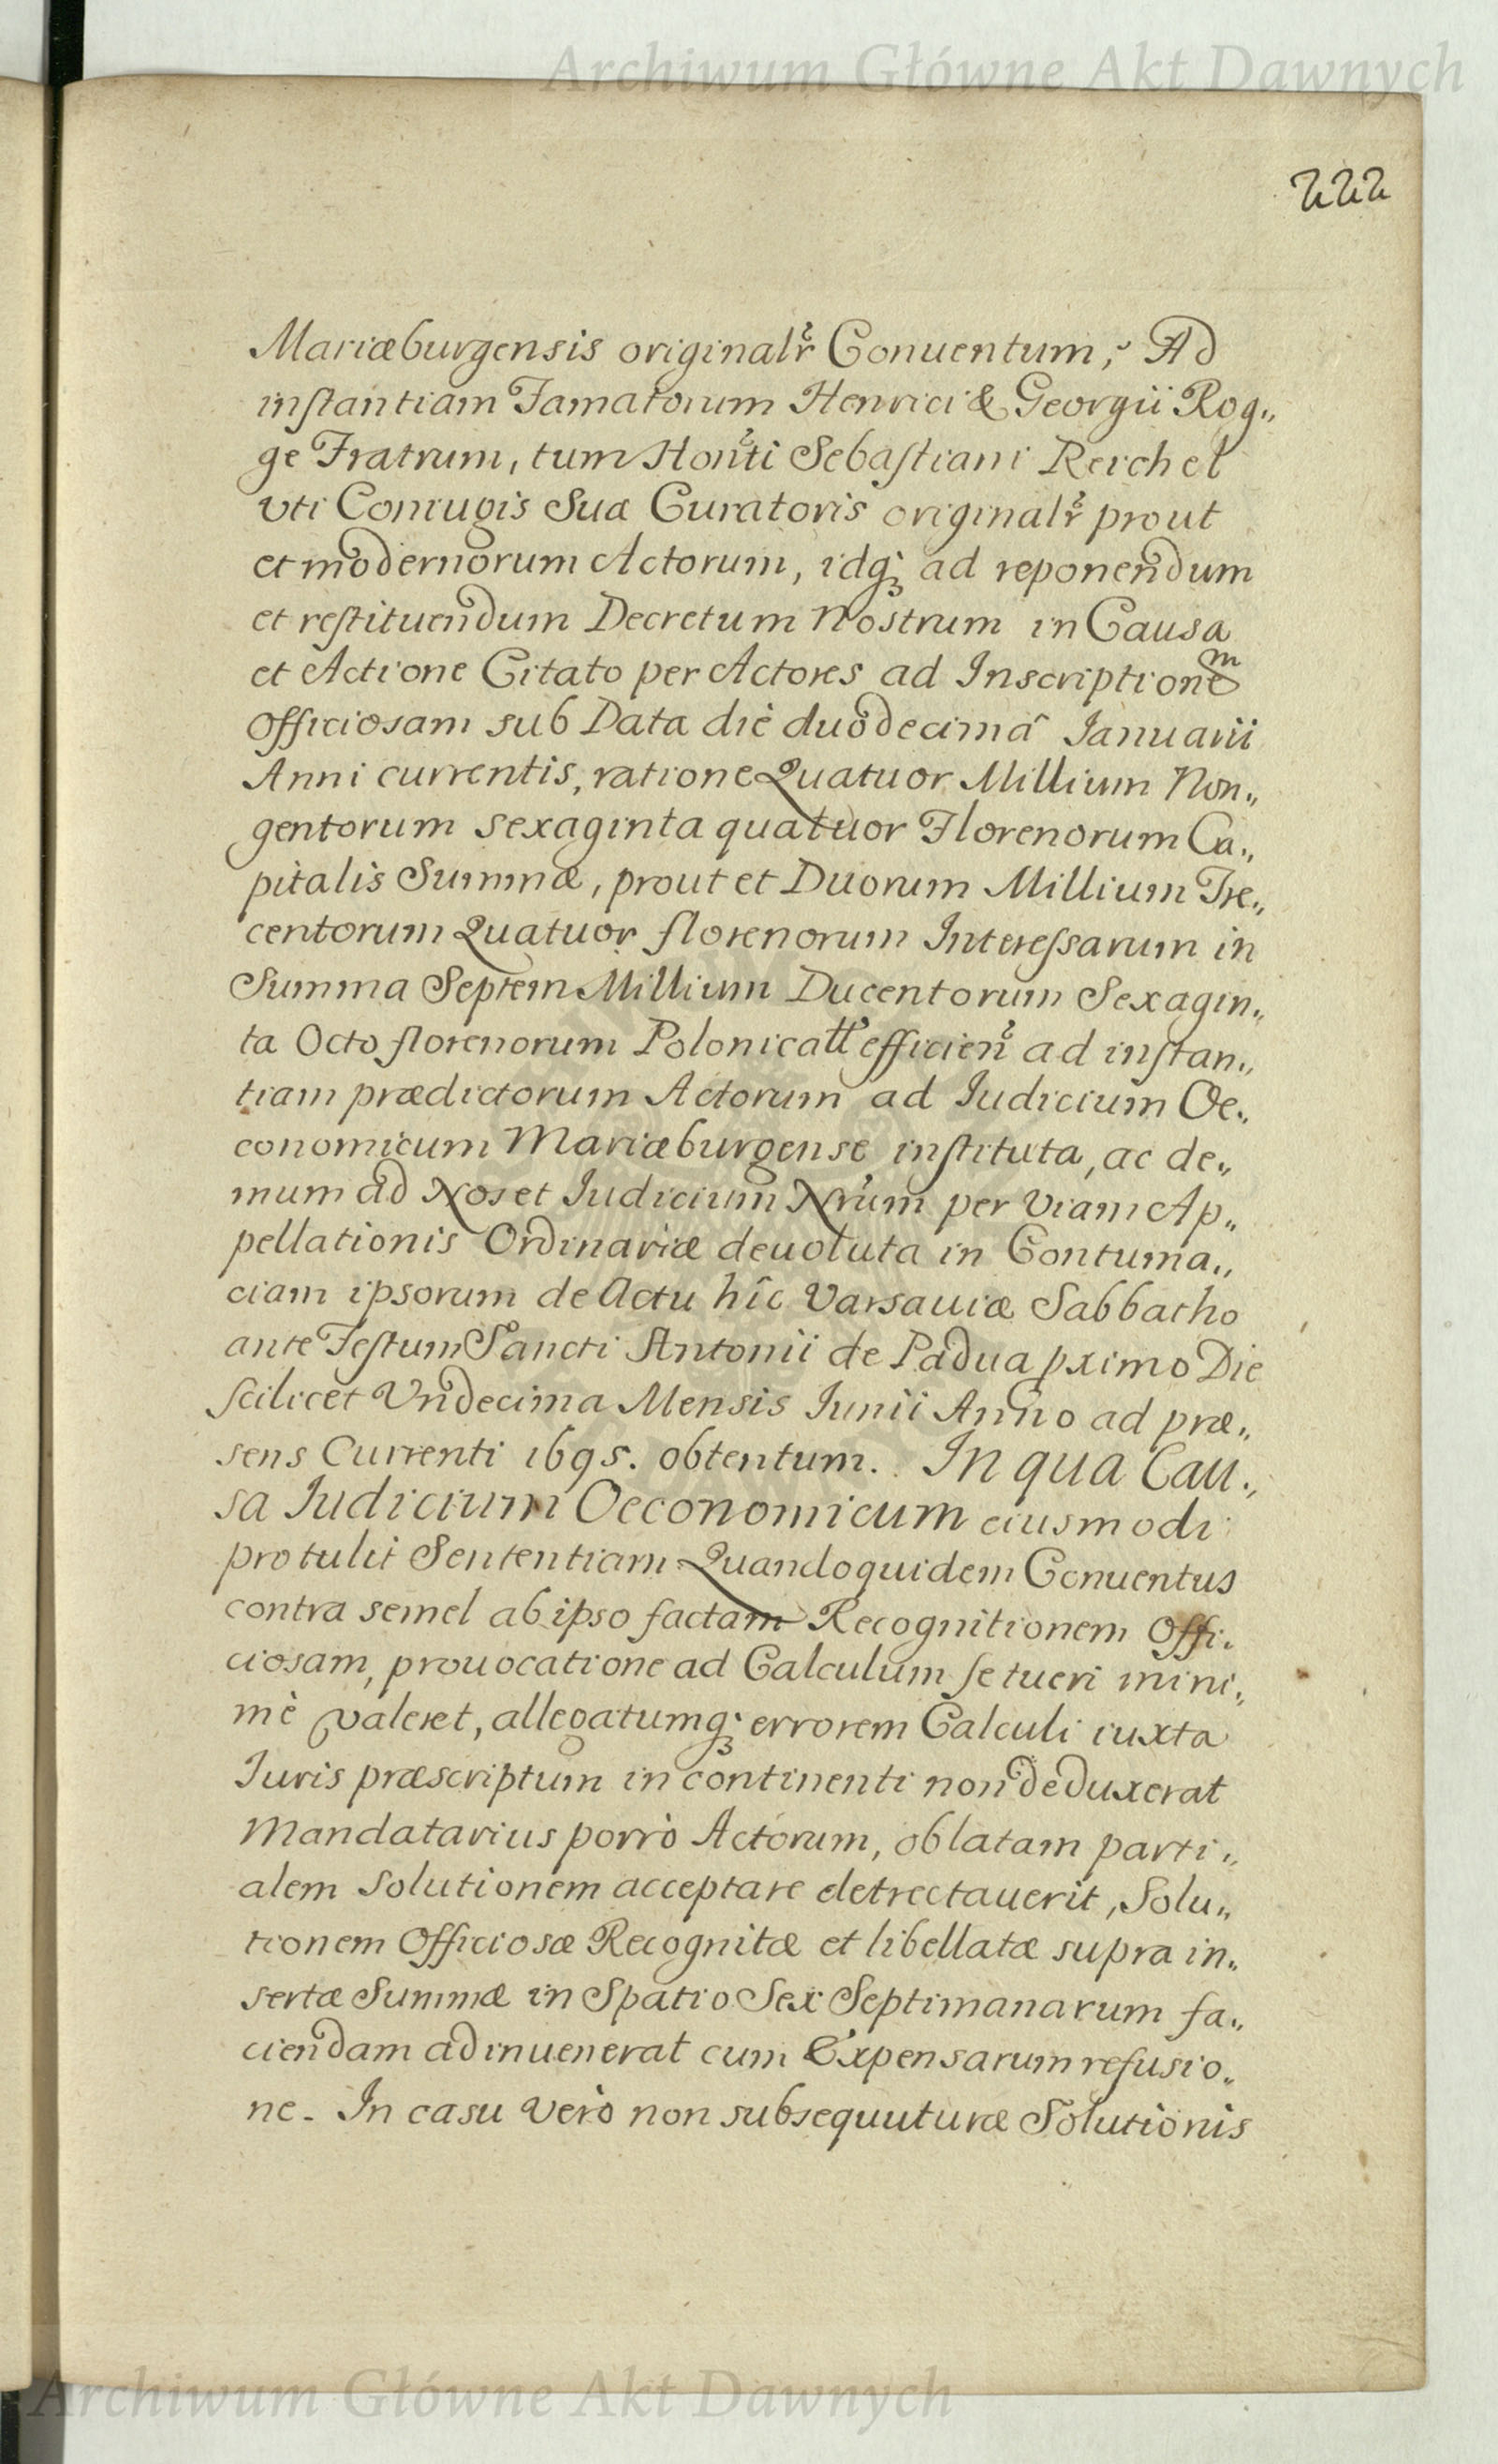 Archiwum Główne Akt Dawnych
222
Mariæburgensis originalr̃ Conuentum, Ad
instantiam Famatorum Henrici & Georgii Rog„
ge Fratrum, tum Hon̄ti Sebastiani Reichel
vti Coniugis Suæ Curatoris originalr̃ prout
et modernorum Actorum, idq; ad reponendum
et restituendum Decretum Nostrum in Causa
et Actione Citato per Actores ad Inscriptionem
Officiosam sub Data diè duodecimâ Ianuarii
Anni currentis, ratione Quatuor Millium Non„
gentorum sexaginta quatuor Florenorum Ca„
pitalis Summæ, prout et Duorum Millium Tre„
centorum Quatuor florenorum Interessarum in
Summa Septem Millium Ducentorum Sexagin„
ta Octo florenorum Polonicatł efficien̄ ad instan„
tiam prædictorum Actorum ad Iudicium Oe„
conomicum Mariæburgense instituta, ac de„
mum ad Nos et Iudicium Nrūm per Viam Ap„
pellationis Ordinariæ deuoluta in Contuma„
ciam ipsorum de Actu hîc Varsauiæ Sabbatho
ante Festum Sancti Antonii de Padua pximo Die
scilicet Vndecima Mensis Iunii Anno ad præ„
sens Currenti 1695. obtentum. In qua Cau„
sa Iudicium Oeconomicum eiusmodi
protulit Sententiam Quandoquidem Conuentus
contra semel ab ipso factam Recognitionem Offi„
ciosam, prouocatione ad Calculum se tueri mini„
mè valeret, allegatumq; errorem Calculi iuxta
Iuris præscriptum in continenti non deduxerat
Mandatarius porrò Actorum, oblatam parti„
alem solutionem acceptare detrectauerit, Solu„
tionem Officiosæ Recognitæ et libellatæ supra in„
sertæ Summæ in Spatio Sex Septimanarum fa„
ciendam adinuenerat cum Expensarum refusio„
ne. In casu verò non subsequuturæ Solutionis
Archiwum Główne Akt Dawnych